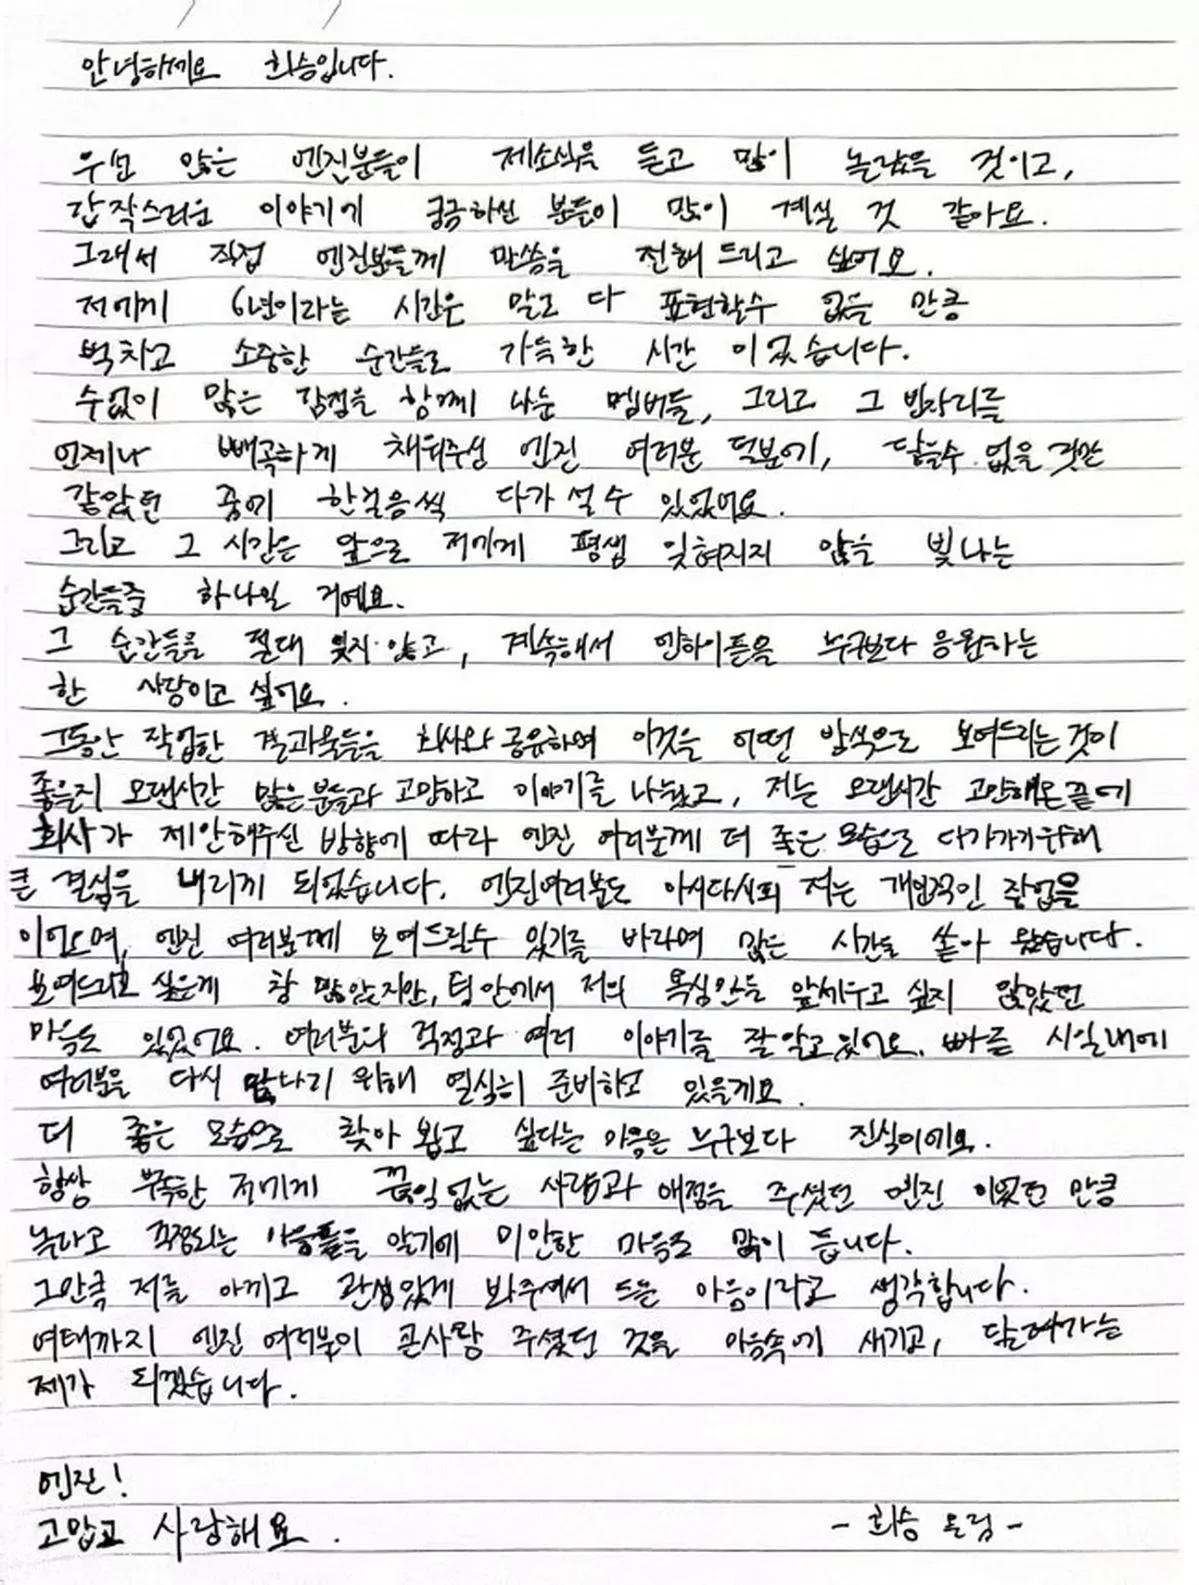 안녕하세요 희승입니다.
우선 많은 엔진분들이 제소식을 듣고 많이 놀랐을 것이고,
갑작스러운 이야기에 궁금하신 분들이 많이 계실 것 같아요.
그래서 직접 엔진분들께 말씀을 전해 드리고 싶어요.
저에게 6년이라는 시간은 말로 다 표현할수 없을 만큼
벅차고 소중한 순간들로 가득한 시간 이었습니다.
수없이 많은 감정을 함께 나눈 멤버들, 그리고 그 빈자리를
언제나 빼곡하게 채워주신 엔진 여러분 덕분에, 닿을수 없을 것만
같았던 꿈에 한걸음씩 다가 설 수 있었어요.
그리고 그 시간은 앞으로 저에게 평생 잊혀지지 않을 빛나는
순간들중 하나일 거예요.
그 순간들을 절대 잊지 않고, 계속해서 엔하이픈을 누구보다 응원하는
한 사람이고 싶어요.
그동안 작업한 결과물들을 회사와 공유하며 이것을 어떤 방식으로 보여드리는 것이
좋을지 오랜시간 많은 분들과 고민하고 이야기를 나눴고, 저는 오랜시간 고민해온 끝에
회사가 제안해주신 방향에 따라 엔진 여러분께 더 좋은 모습으로 다가가기위해
큰 결심을 내리게 되었습니다. 엔진여러분도 아시다시피 저는 개인적인 작업을
이어으며, 엔진 여러분께 보여드릴수 있기를 바라며 많은 시간을 쏟아 왔습니다.
보여드리고 싶은게 참 많았지만, 팀 안에서 저의 욕심만을 앞세우고 싶지 않았던
마음도 있었어요. 여러분의 걱정과 여러 이야기를 잘 알고 있어요. 빠른 시일내에
여러분을 다시 만나기 위해 열심히 준비하고 있을게요.
더 좋은 모습으로 찾아 뵙고 싶다는 마음은 누구보다 진심이에요.
항상 부족한 저에게 끊임없는 사랑과 애정을 주셨던 엔진 이었던 만큼
놀라고 걱정되는 마음들을 알기에 미안한 마음도 많이 듭니다.
그만큼 저를 아끼고 관심있게 봐주셔서 드는 마음이라고 생각합니다.
여태까지 엔진 여러분이 큰사랑 주셨던 것을 마음속에 새기고, 달려가는
제가 되겠습니다.
엔진!
고맙고 사랑해요. - 희승 올림 -